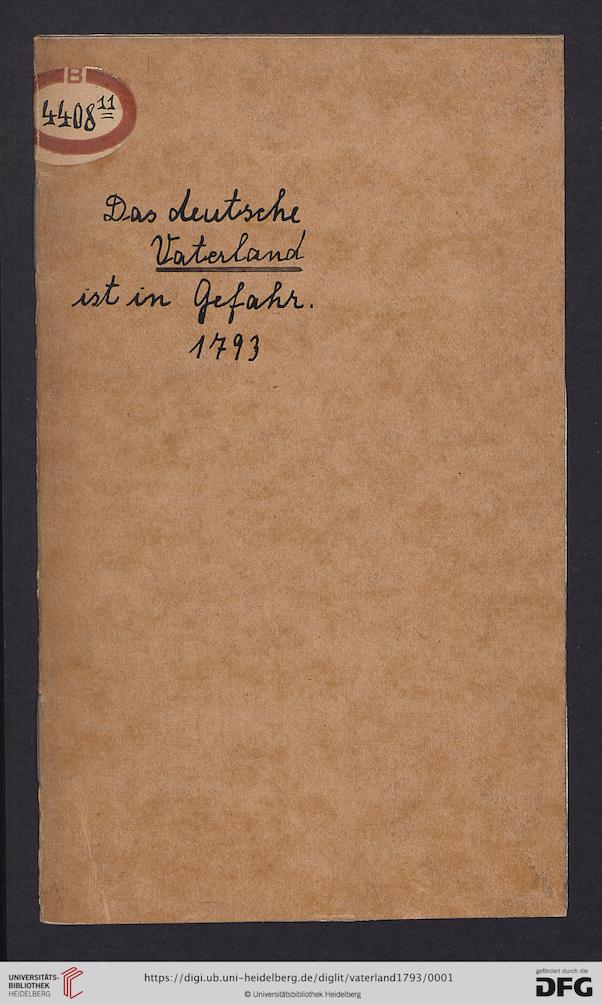 B
4408 11
Das deutsche
Vaterland
ist in Gefahr.
1793
UNIVERSITÄTS-
BIBLIOTHEK
HEIDELBERG
https://digi.ub.uni-heidelberg.de/diglit/vaterland1793/0001
© Universitätsbibliothek Heidelberg
gefördert durch die
DFG